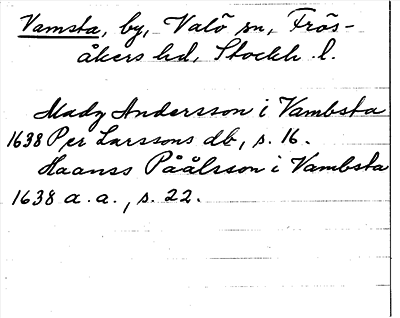 Vamsta, by, Valö sn, Frös-
åkers hd, Stockh. l.
Mady Andersson i Vambsta
1638 Per Larssons db, s. 16.
Haanss Påålsson i Vambsta
1638 a. a., s. 22.